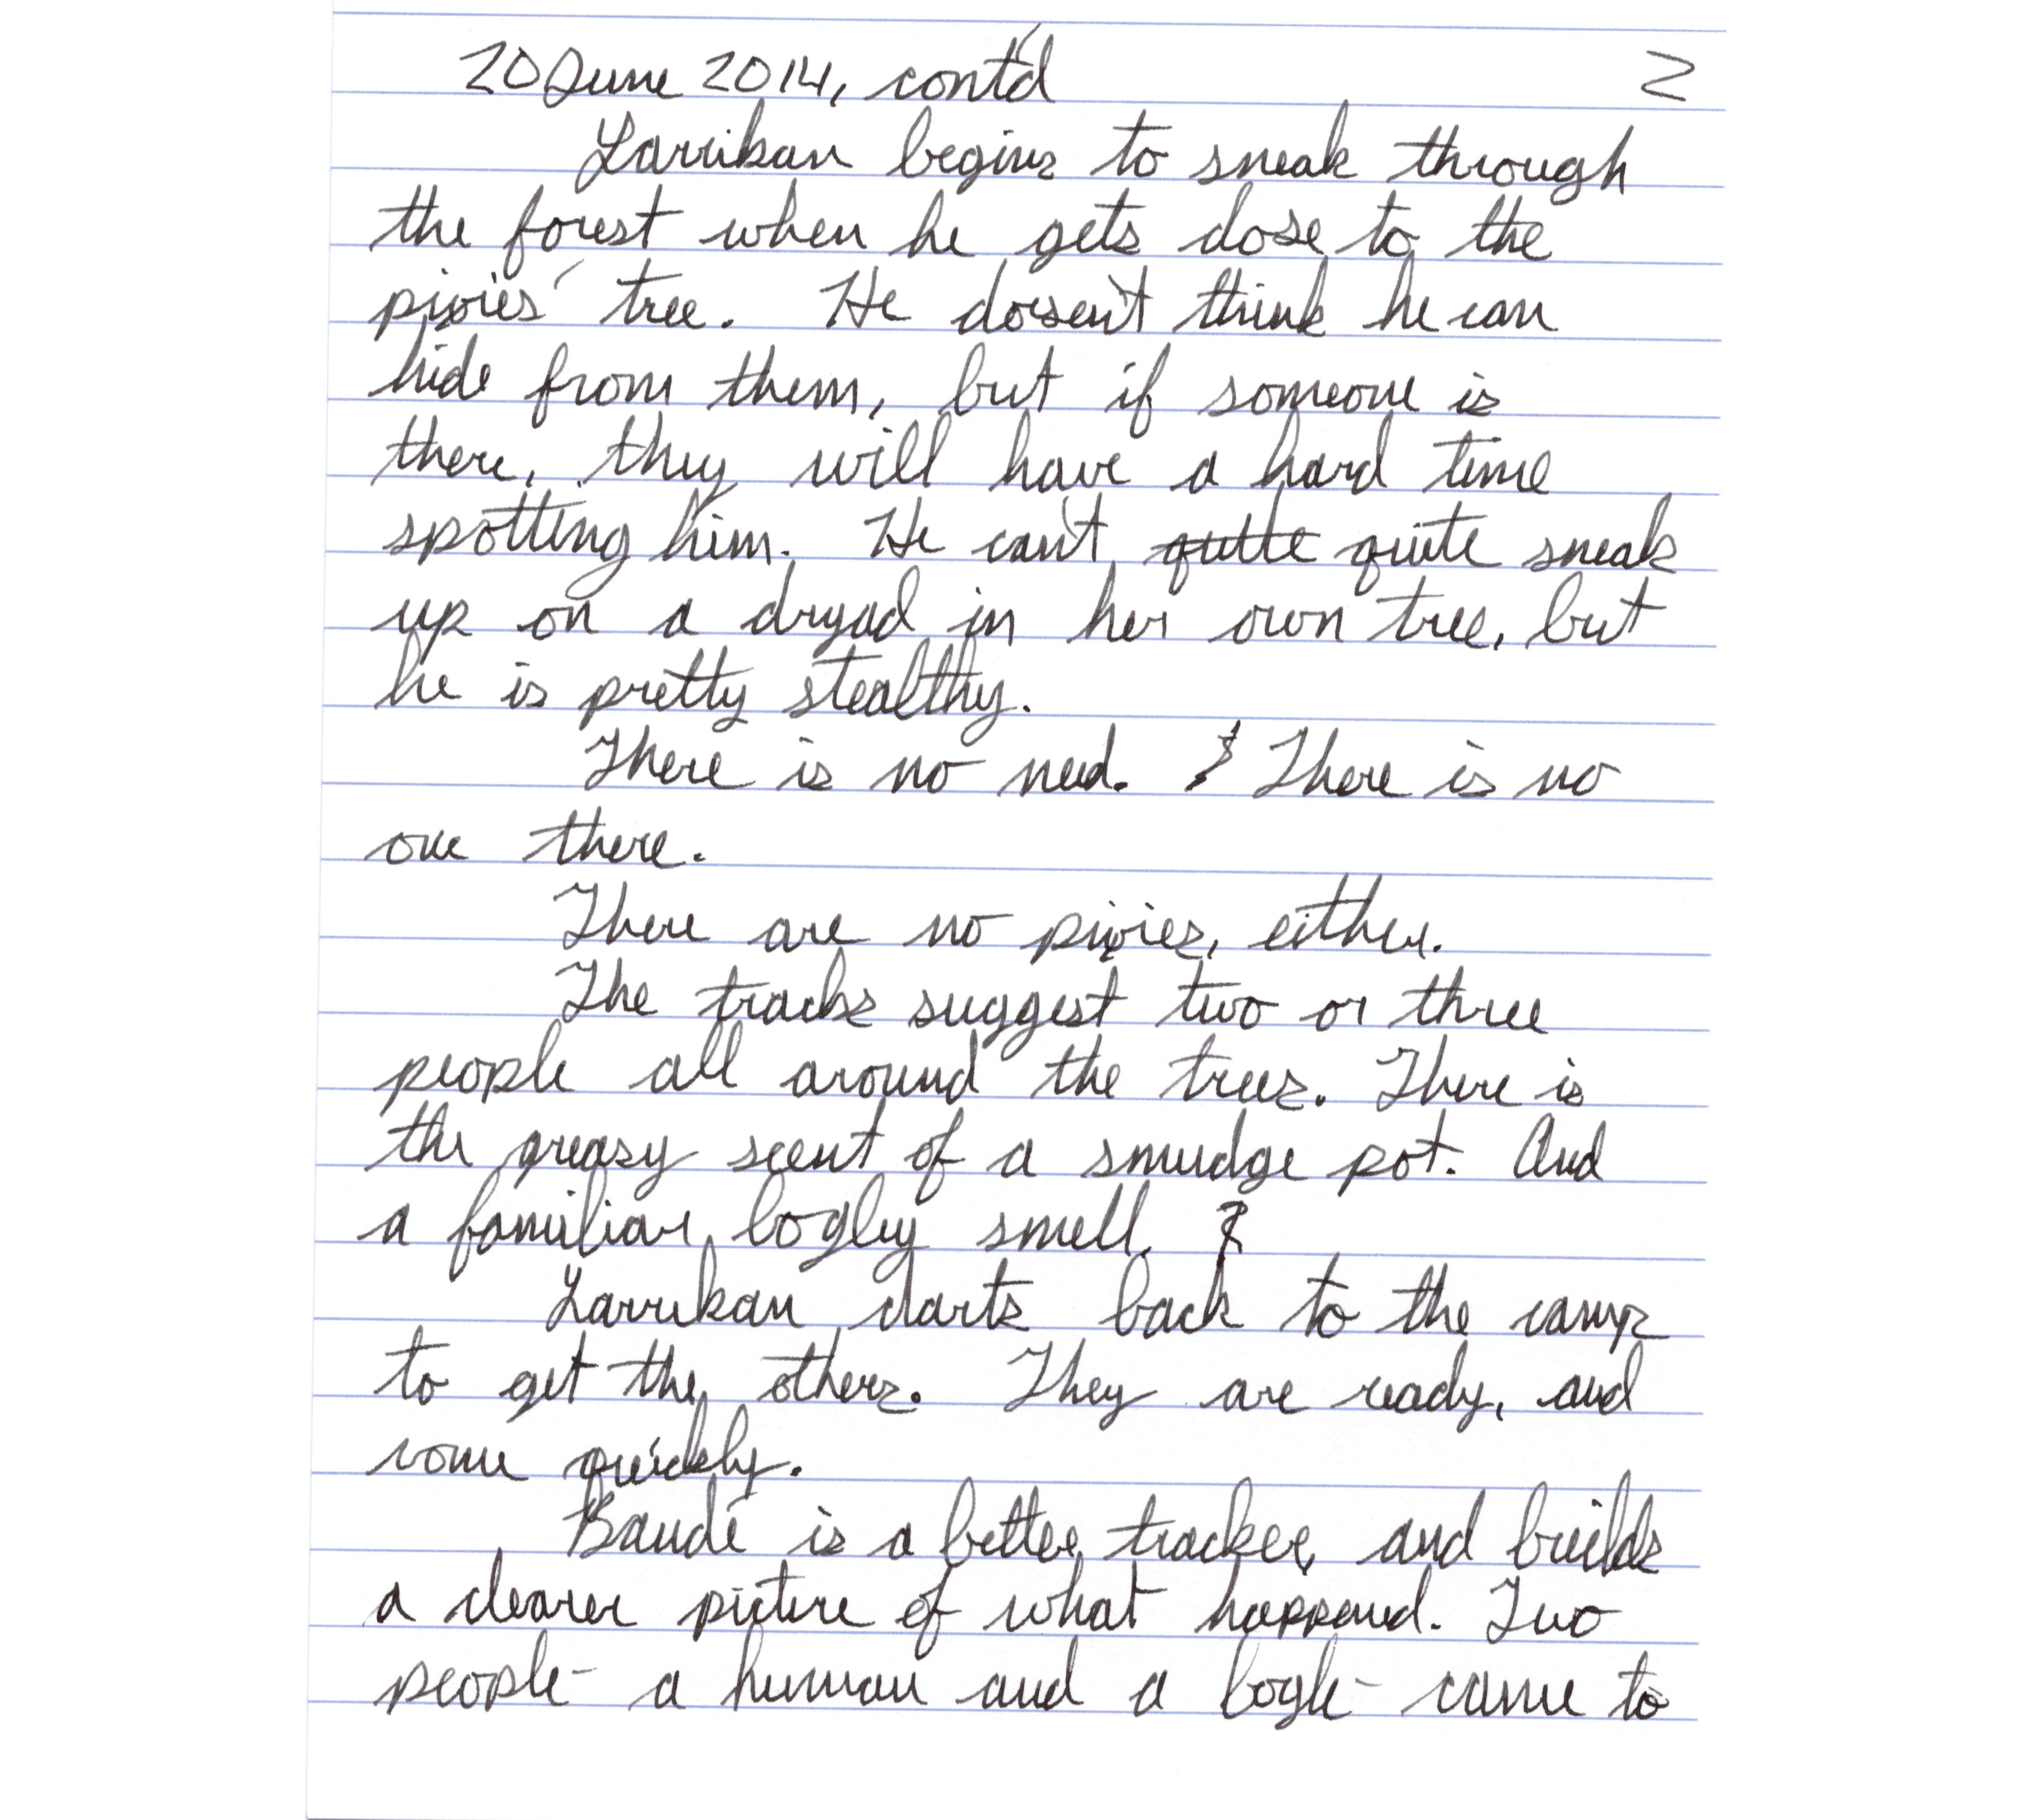 20 June 2014, cont'd 2
Larrikan begins to sneak through
the forest when he gets close to the
pixies' tree. He doesn't think he can
hide from them, but if someone is
there, they will have a hard time
spotting him. He can't quitte quite sneak
up on a dryad in her own tree, but
he is pretty stealthy.
There is no need. There is no
one there.
There are no pixies, either.
The tracks suggest two or three
people all around the trees. There is
the greasy scent of a smudge pot. And
a familiar, bogley smell.
Larrikan darts back to the camp
to get the others. They are ready, and
come quickly.
Baude is a better tracker, and builds
a clearer picture of what happened. Two
people - a human and a bogle - came to